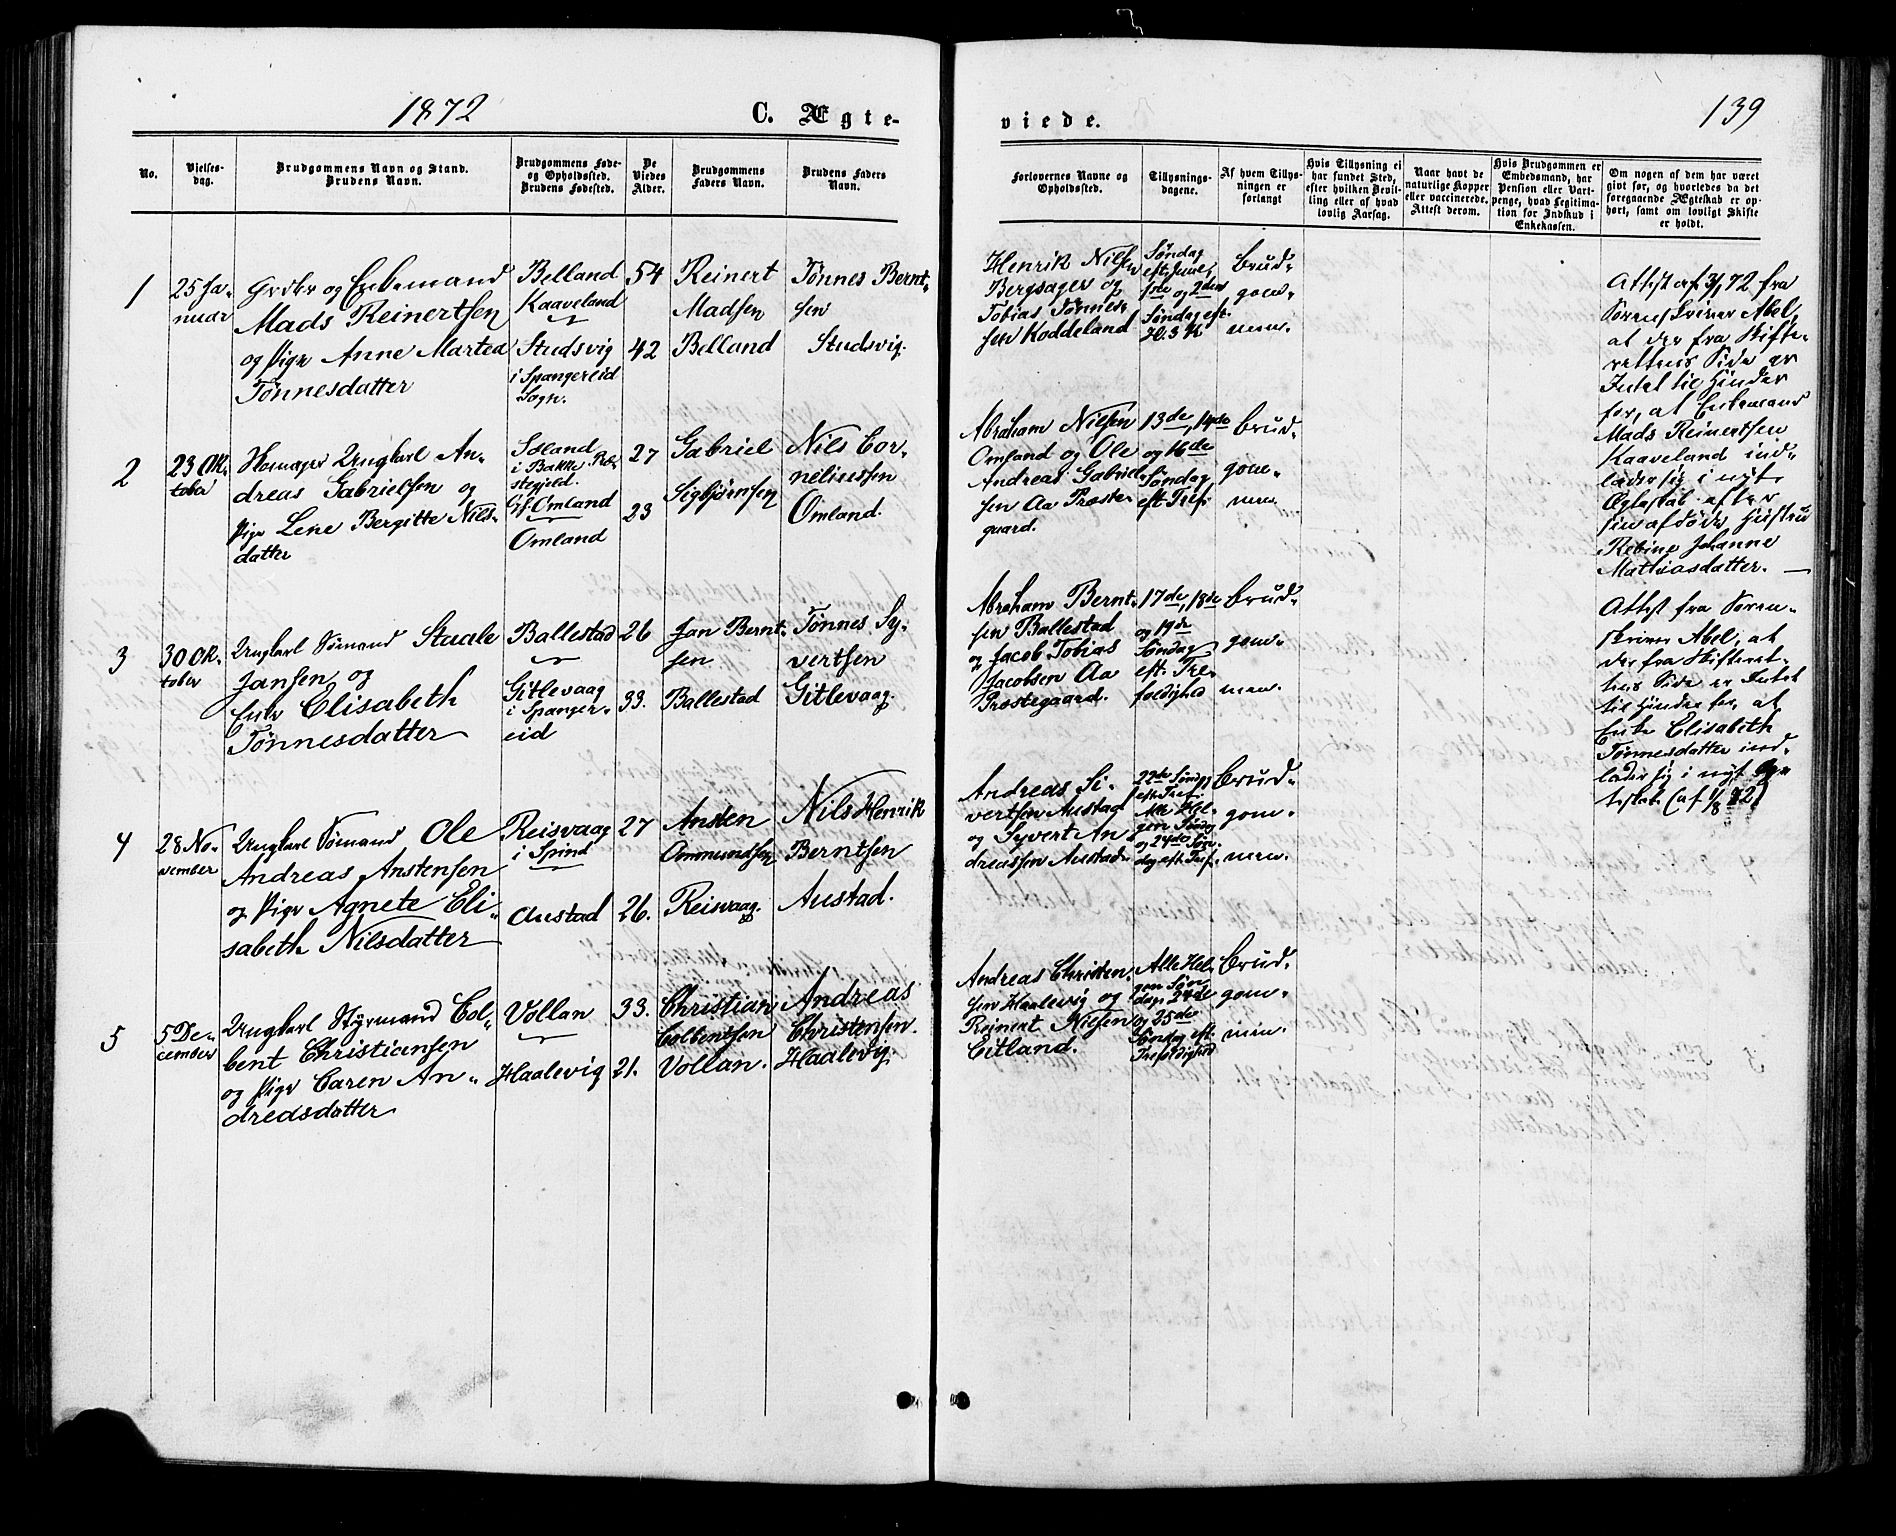 1872
C. Ægte-
viede.
139
No.
Vielses-
dag.
Brudgommens Navn og Stand.
Brudens Navn.
Brudgommens Føde-
og Opholdssted.
Brudens Fødested.
De
Viedes
Alder.
Brudgommens
Faders Navn.
Brudens Faders
Navn.
Forlovernes Navne og
Opholdssted.
Tillysnings-
dagene.
Af hvem Tillys-
ningen er
forlangt
Hvis Tillysning ei
har fundet Sted,
efter hvilken Bevil-
ling eller af hvad
lovlig Aarsag.
Naar havt de
naturlige Kopper
eller vaccinerede.
Attest derom.
Hvis Brudgommen er
Embedsmand, har
Pension eller Vart-
penge, hvad Legitima-
tion for Indskud i
Enkekassen.
Om nogen af dem har været
gift før, og hvorledes da det
foregaaende Ægteskab er op-
hørt, samt om lovligt Skifte
er holdt.
1
25 Ja-
nuar
Grdbr og Enkemand
Mads Reinertsen
og Pige Anne Martea
Tønnesdatter
Belland
Kaaveland
Studsvig
i Spangereid
Sogn.
54
42
Reinert
Madsen
Belland
Tønnes Bernt-
sen
Studsvig.
Henrik Nilsen
Bergsager og
Tobias Tønnes-
sen Koddeland
Søndag
eft. Juul,
1ste og 2den
Søndag eft.
H. 3 K.
Brud-
gom-
men.
Attest af 3/1 72 fra
Sorenskriver Abel,
at der fra Skifte-
rettens Side er
Intet til Hinder
for, at Enkemand
Mads Reinertsen
Kaaveland ind-
lader sig i nyt
Ægteskab efter
sin afdøde Hustru
Rebine Johanne
Mathiasdatter. —
2
23 Ok-
tober
Ungkarl An-
dreas Gabrielsen og
Pige Lene Bergitte Nils-
datter
i Bakke
Omland
Omland
27
23
Gabriel
Sigbjørnsen
Nils Cor-
neliussen
Omland.
Abraham Nilsen
Omland og Ole
Andreas Gabriel-
sen Aa Præste-
gaard.
13de, 14de
og 16de
Søndag
eft Tref.
Brud-
gom-
men.
3
30 Ok-
tober
Ungkarl Sømand Staale
Jansen og
Enke Elisabeth
Tønnesdatter
Ballestad
Gitlevaag
i Spanger-
eid
26
33.
Jan Bernt-
sen
Ballestad
Tønnes Sy-
vertsen
Gitlevaag.
Abraham Bernt-
sen Ballestad
og Jacob Tobias
Jacobsen Aa
Præstegaard.
17de, 18de
og 19de
Søndag
eft. Tre-
foldighed
Brud-
gom-
men.
Attest fra Soren-
skriver Abel, at
der fra Skifteret-
tens Side er Intet
til Hinder for, at
Enke Elisabeth
Tønnesdatter ind-
lader sig i nyt Æg-
teskab (af 1/8 72)
4
28 No-
vember
Ungkarl Sømand Ole
Andreas Anstensen
og Pige Agnete Eli-
sabeth Nilsdatter
Reisvaag
i Spind
Austad
27
26.
Ansten
Ommundsen
Reisvaag.
Nils Henrik
Berntsen
Austad.
Andreas Si-
vertsen Austad
og Syvert An-
dreassen Austad
22de Søndag
eft Tref.
Alle Hel-
gen Søndag
og 24de Søn-
dag eft. Tref.
Brud-
gom-
men.
5
5 De-
cember
Ungkarl Styrmand Col-
bent Christiansen
og Pige Caren An-
dreasdatter
Vollan
Haalevig
33.
21.
Christian
Colbentsen
Vollan.
Andreas
Christensen.
Haalevig
Andreas Christen-
sen Haalevig og
Reinert Nielsen
Eitland.
Alle Hel-
gen Søn-
dag, 24de
og 25de
Søndag eft.
Trefoldighed
Brud-
gom-
men.